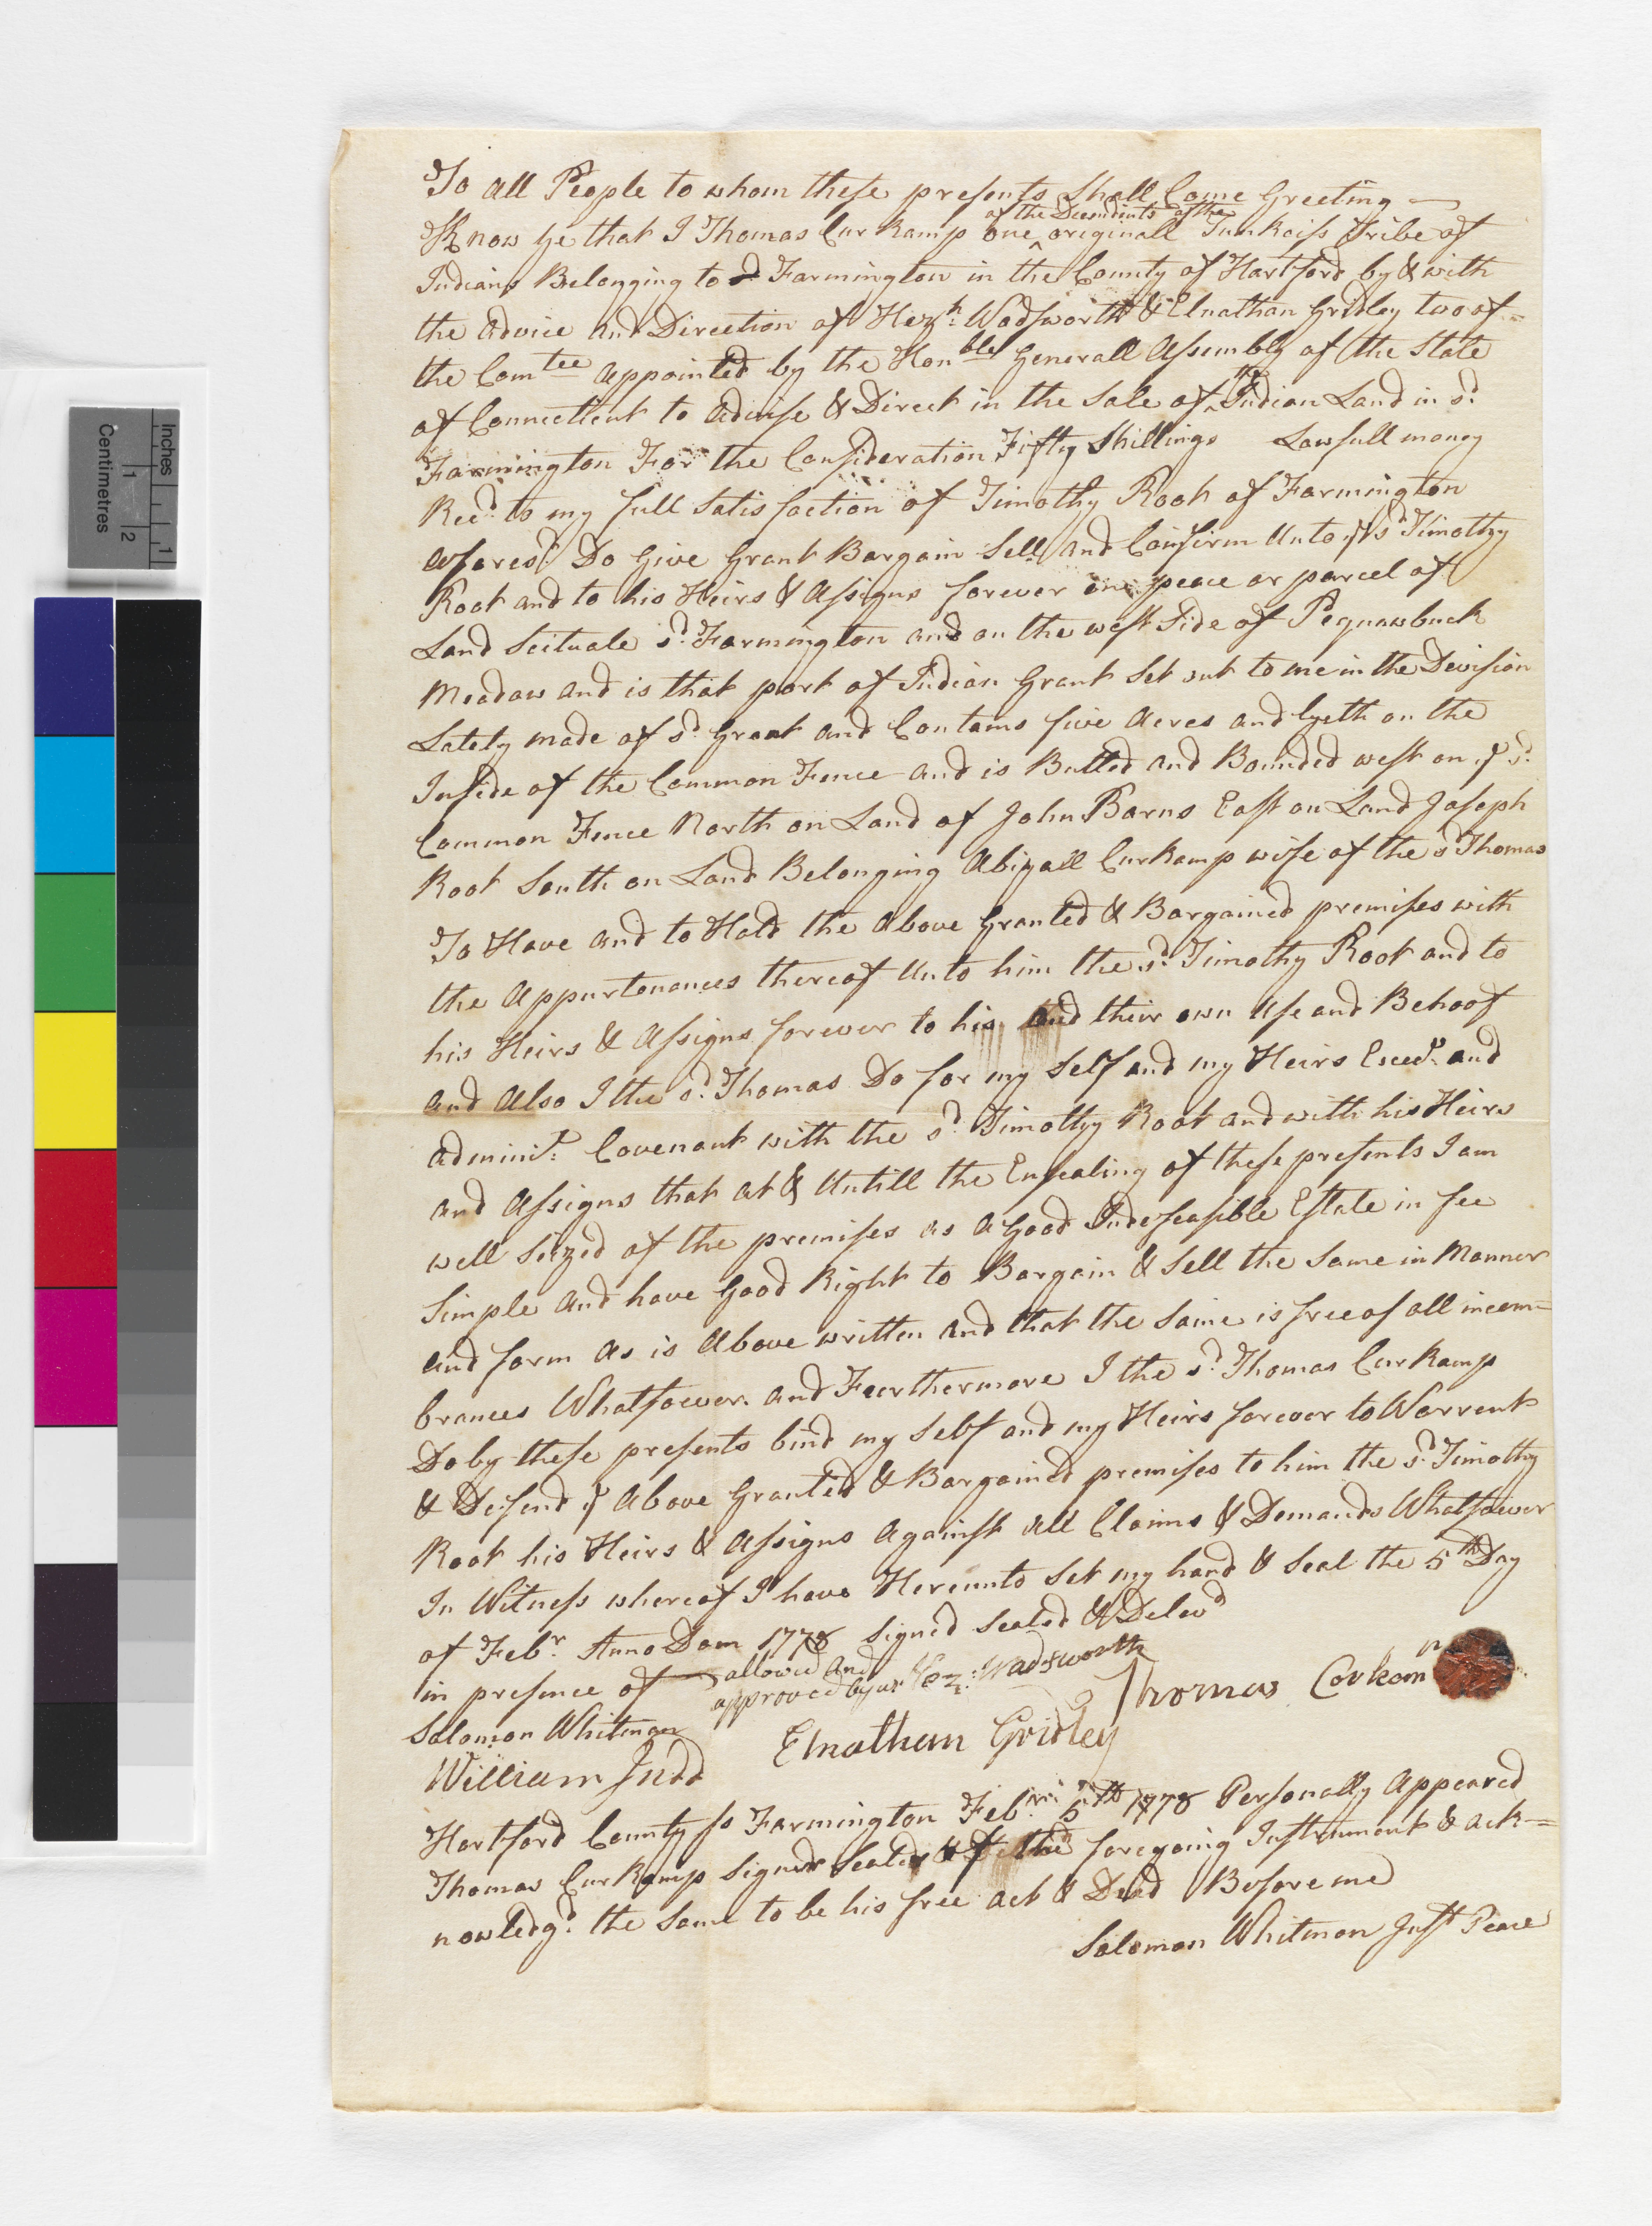 To all People to whom these presents Shall Come Greeting
Know ye that I Thomas Curkamp one ^of the Decendents of the originall Tunkaiss Tribe of
Indians Belonging to Farmington in the County of Hartford by & with
the advice and Direction of Hezh: Wadsworth & Elnathan Gridley two of=
the Comtee appointed by the Honble Generall Assembly of the State
of Connecticut to advise & Direct in the Sale of ^the Indian Land in sd
Farmington For the Consideration Fifty Shillings Lawfull money
Recd. to my full Satisfaction of Timothy Root of Farmington
aforesd. Do Give Grant Bargain Sell and Confirm Unto ye sd Timothy
Root and to his Heirs & Assigns forever one peace or parcel of
Land Scituate sd. Farmington and on the west Side of Pequawbuck
Meadow and is that part of Indian Grant Set out to me in the Devision
Lately made of sd. Grant and Contains five Acres and lyeth on the
Inside of the Common Fence and is Butted and Bounded west on ye sd.
Common Fence North on Land of John Barns East on Land Joseph
Root South on Land Belonging Abigall Curkamp wife of the sd Thomas
To Have and to Hold the Above Granted & Bargained premises with
the Appurtenances thereof Unto him the sd. Timothy Root and to
his Heirs & Assigns forever to his and their own Use and Behoof
and Also I the sd. Thomas Do for my Self and my Heirs Execrs. and
adminrs. Covenant with the sd. Timothy Root and with his Heirs
and Assigns that at & Untill the Ensealing of these presents I am
well Seized of the premises as a Good Indefeasible Estate in fee
Simple and have Good Right to Bargain & Sell the Same in Manner
and form As is Above written and that the Same is free of all incum=
brances Whatsoever. and Furthermore I the sd. Thomas Curkamp
Do by these presents bind my Self and my Heirs forever to Warrent
& Defend ye Above Granted & Bargained premises to him the sd. Timothy
Root his Heirs & Assigns Against all Claims & Demands Whatsoever
In Witness whereof I have Hereunto Set my hand & Seal the 5th Day
of Febr. Anno Dom 1778 Signed Sealed & Delevd
in presence of
allowed and
approved by us Hez: Wadsworth
Thomas Corkom
Solomon Whitman
Elnathan Gridley
William Judd
Hartford County ss Farmington Febri. 5th 1778 Personally Appeared
Thomas Curkamp Signer Sealer of the foregoing Instrument & ack=
nowledgd. the Same to be his free act & Deed Before me
Solomon Whitman Just Peace
Inches
1
Centimetres
1
2